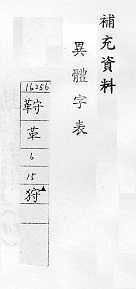 補充資料
異體字表
16256
革
6
15
狩▲